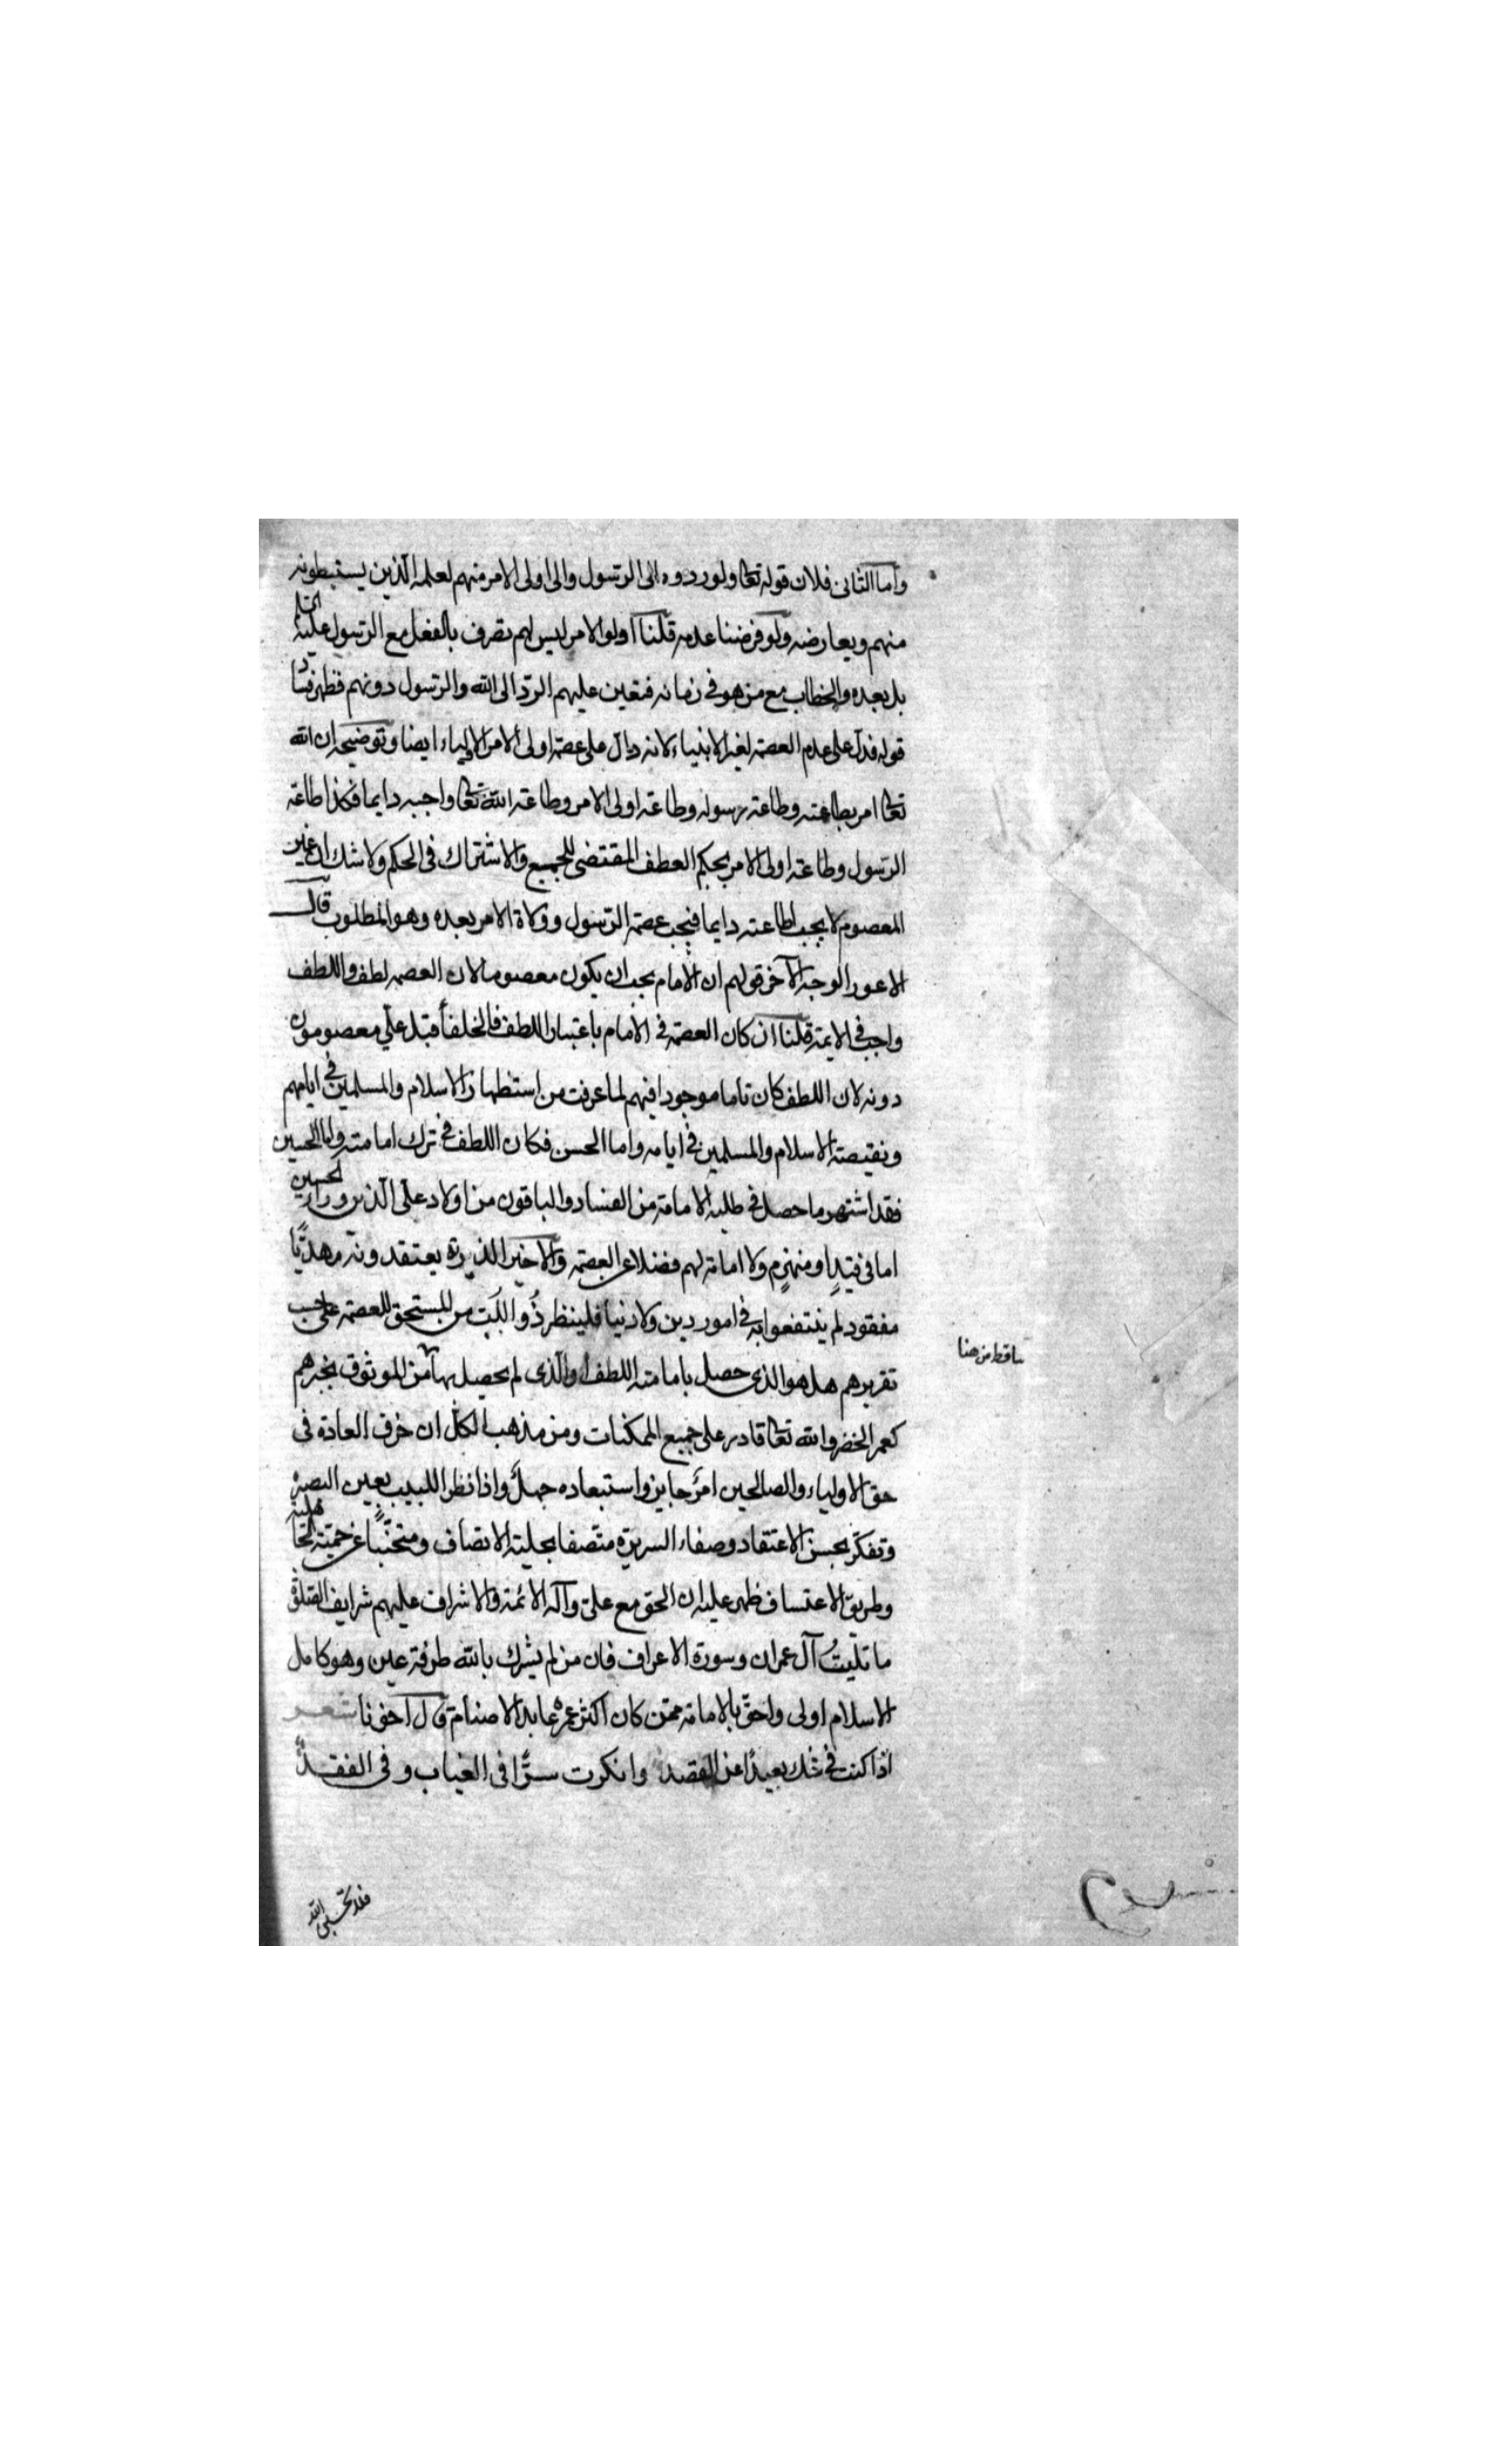 واما الثانى فلان قوله تعا ولو ردوه الى الرسول والى اولى الامر منهم لعلمه الذين يستنبطونه
منهم ويعارضه ولو فرضنا عدمه قلنا اولوا الامر ليس لهم تصرف بالفعل مع الرسول عليه السلم
بل بعده والخطاب مع من هو فى زمانه فتعين عليهم الرد الى الله والرسول دونهم فظهر فساد
قوله فدل على عدم العصمة لغير الانبياء لانه دال على عصمة اولى الامر الاولياء ايضا وتوضيحه ان الله
تعا امر بطاعته وطاعة رسوله وطاعة اولى الامر وطاعة الله تعا واجبه دايما فكذا طاعة
الرسول وطاعة اولى الامر بحكم العطف المقتضى للجميع والاشتراك فى الحكم ولا شك ان غير
المعصوم لا يجب اطاعته دايما فيجب عصمة الرسول وولاة الامر بعده وهو المطلوب قال
الاعور الوجه الآخر قولهم ان الامام يجب ان يكون معصوما لان العصمه لطف واللطف
واجب فى الايمة قلنا ان كان العصمة فى الامام باعتبار اللطف فالخلفأ قبل علي معصومون
دونه لان اللطف كان تاما موجودا فيهم لما عرفت من استظهار الاسلام والمسلمين فى ايامهم
ونقيصة الاسلام والمسلمين فى ايامه واما الحسن فكان اللطف فى ترك امامته واما الحسين
فقد اشتهر ما حصل فى طلبه الامامة من الفساد والباقون من اولاد على الذين ورا الحسين
اما فى قيد او منهزم ولا امامة لهم فضلا عن العصمة والاخير الذى يعتقدونه مهديّا
مفقود لم ينتفعوا به فى امور دين ولا دنيا فلينظر ذو اللب من المستحق للعصمة على حسب
تقريرهم هل هو الذى حصل بامامته اللطف او الذى لم يحصل بها من الموثوق بخبرهم
كعمر الخضر والله تعا قادر على جميع الممكنات ومن مذهب الكل ان خرق العادة فى
حق الاولياء والصالحين امر جايز واستبعاده جهل واذا نظر اللبيب بعين البصيرة
وتفكر بحسن الاعتقاد وصفاء السريرة متصفا بحلية الانصاف ومتجنبا عن حمية الجاهلية
وطريق الاعتساف ظهر عليه ان الحق مع على وآله الائمة والاشراف عليهم شرايف الصلوة
ما تليت آل عمران وسورة الاعراف فان من لم يشرك بالله طرفة عين وهو كامل
الاسلام اولى واحق بالامامة ممن كان اكثر عمره عابد الاصنام قال اخونا شعر
اذا كنت فى شك بعيدا عن القصد وانكرت سرّا فى الغياب وفى الفقد
ساقط من هنا